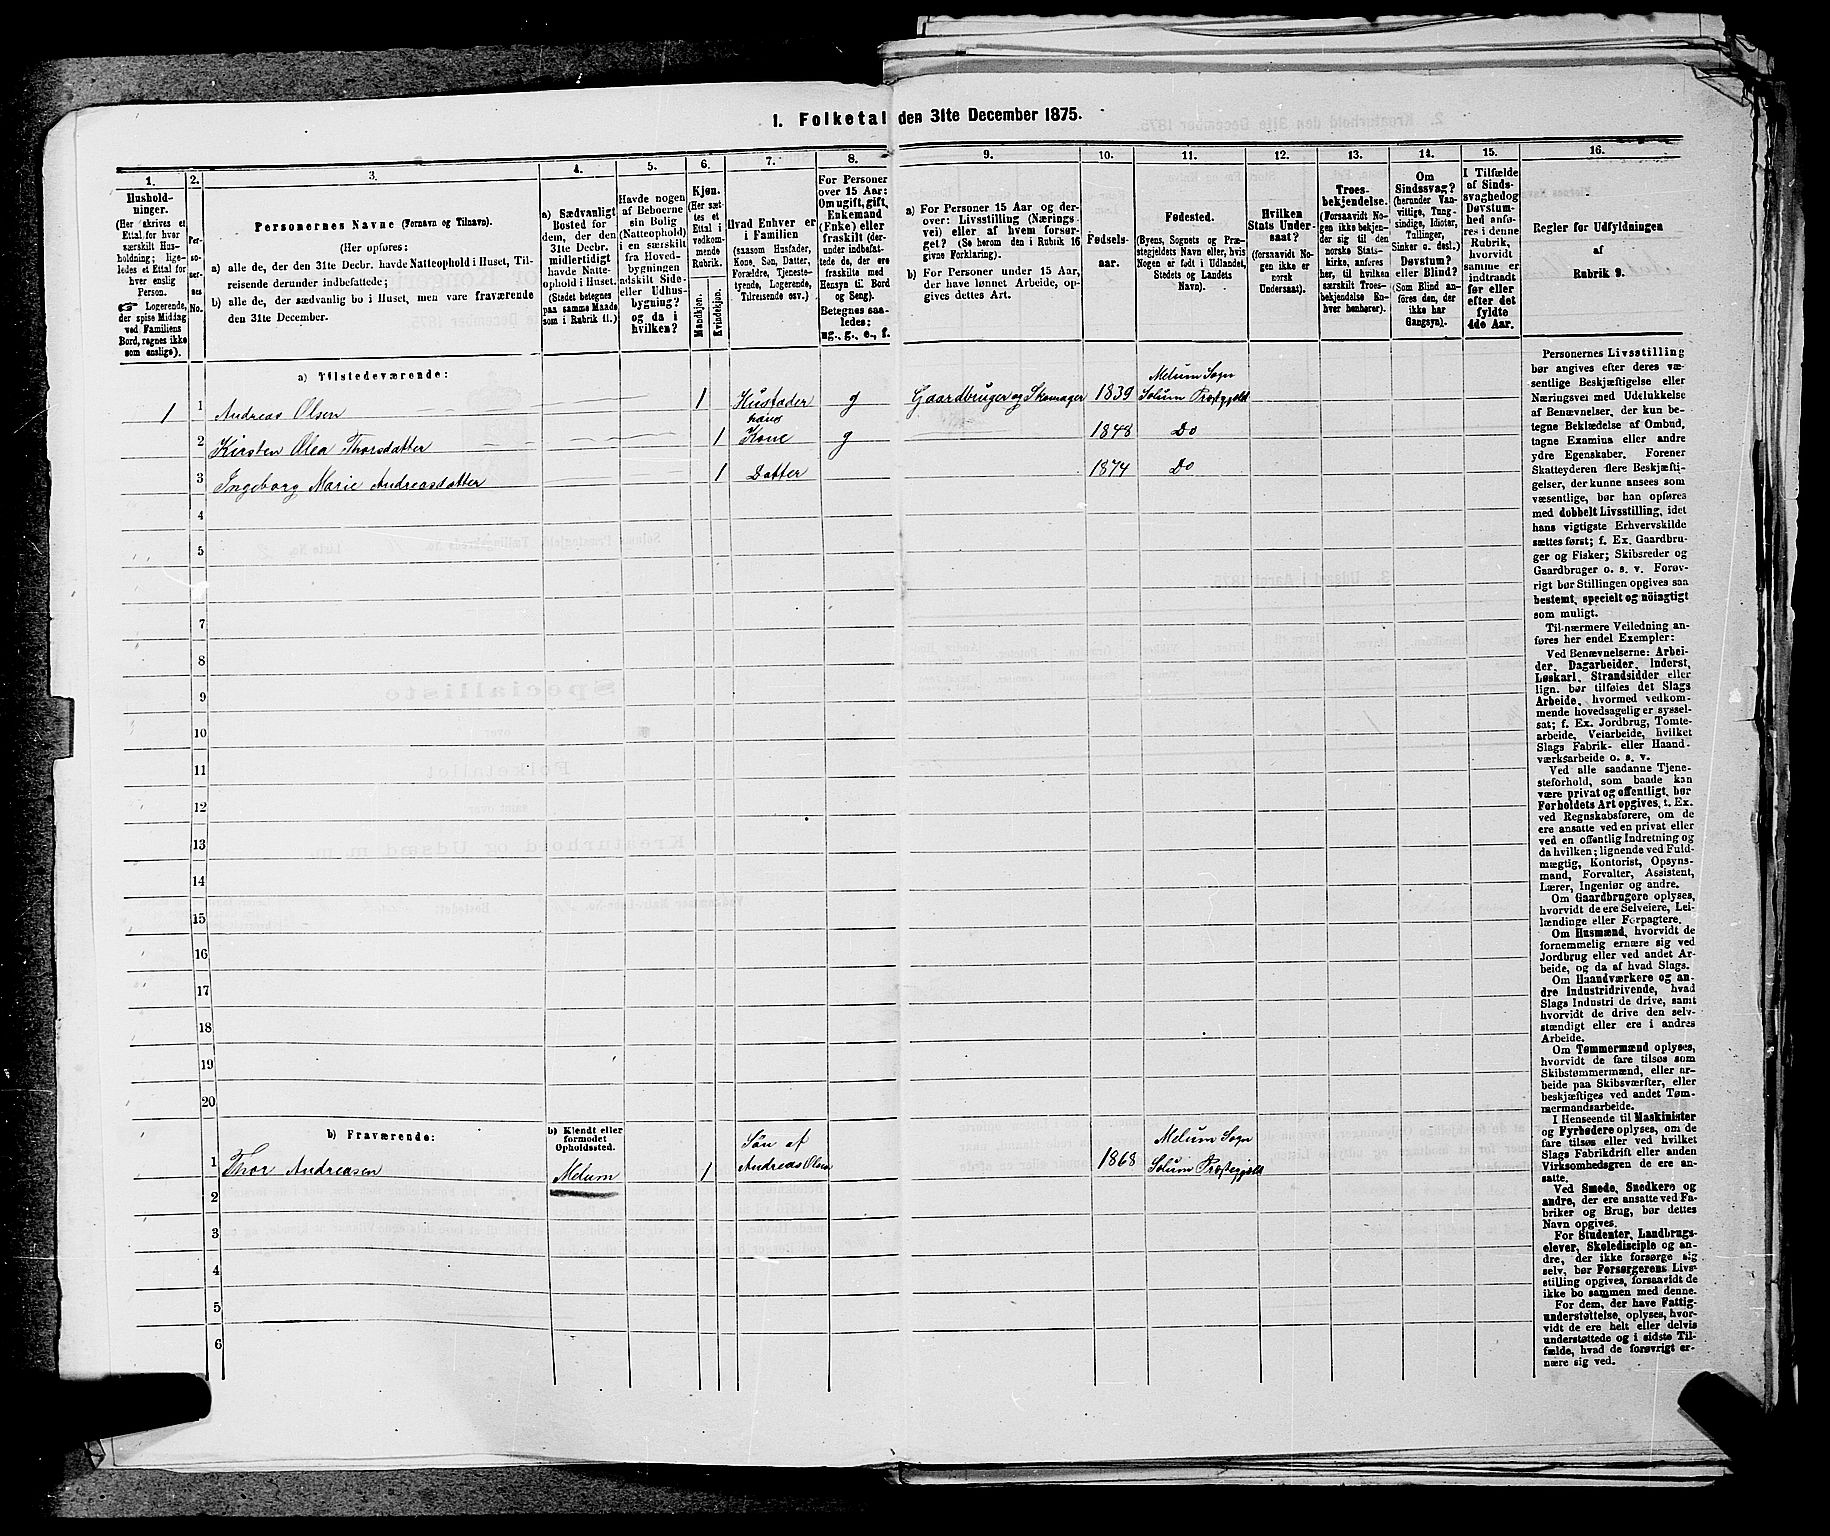 1. Folketal den 31te December 1875.
1.
Hushold-
ninger.
(Her skrives et
Ettal for hver
særskilt Hus-
holdning; lige-
ledes et Ettal for
hver enslig
Person.
Logerende,
der spise Middag
ved Familiens
Bord, regnes ikke
som enslige).
2.
Per-
so-
ner-
nes
No.
3.
Personernes Navne (Fornavn og Tilnavn).
(Her opføres:
a) alle de, der den 31te Decbr. havde Natteophold i Huset, Til-
reisende derunder indbefattede;
b) alle de, der sædvanlig bo i Huset, men vare fraværende
den 31te December.
4.
a) Sædvanligt
Bosted for
dem, der den
31te Decbr.
midlertidigt
havde Natte-
ophold i Huset.
(Stedet betegnes
paa samme Maade
som i Rubrik 11.)
5.
Havde nogen
af Beboerne
sin Bolig
(Natteophold)
i en særskilt
fra Hoved-
bygningen
adskilt Side-
eller Udhus-
bygning?
og da i
hvilken?
6.
Kjøn.
(Her sæt-
tes et
Ettal i
vedkom-
mende
Rubrik.
Mandkjøn.
Kvindekjøn.
7.
Hvad Enhver er
i Familien
(saasom Husfader,
Kone, Søn, Datter,
Forældre, Tjeneste-
tyende, Logerende,
Tilreisende osv.)
8.
For Personer
over 15 Aar:
Om ugift, gift,
Enkemand
(Enke) eller
fraskilt (der-
under indbefat-
tede de, der ere
fraskilte med
Hensyn til Bord
og Seng).
Betegnes saa-
ledes:
ug., g., e., f.
9.
a) For Personer 15 Aar og der-
over: Livsstilling (Nærings-
vei) eller af hvem forsør-
get? (Se herom den i Rubrik 16
givne Forklaring).
b) For Personer under 15 Aar,
der have lønnet Arbeide, op-
gives dettes Art.
10.
Fødsels-
aar.
11.
Fødested.
(Byens, Sognets og Præ-
stegjeldets Navn eller, hvis
Nogen er født i Udlandet,
Stedets og Landets
Navn).
12.
Hvilken
Stats Under-
saat?
(forsaavidt No-
gen ikke er
norsk
Undersaat).
13.
Troes-
bekjendelse.
(Forsaavidt No-
gen ikke bekjen-
der sig til den
norske Stats-
kirke, anføres
her, til hvilken
særskilt Troes-
bekjendelse En-
hver henhører).
14.
Om
Sindssvag?
(herunder Van-
vittige, Tung-
sindige, Idioter,
Tullinger,
Sinker o. desl.)
Døvstum?
eller Blind?
(Som Blind an-
føres den, der
ikke har
Gangsyn).
15.
I Tilfælde
af Sinds-
svaghed og
Døvstum-
hed anfø-
res i denne
Rubrik,
hvorvidt
samme er
indtraadt
før eller
efter det
fyldte
4de Aar.
16.
Regler for Udfyldningen
af
Rubrik 9.
a) Tilstedeværende:
1 1 Andreas Olsen 1 Husfader g Gaardbruger og Skomager 1839 Melum Sogn Solum Præstegjeld
2 Kirsten Olea Thorsdatter 1 hans Kone g 1848 Do
3 Ingeborg Marie Andreasdatter 1 Datter 1874 Do
4
5
6
7
8
9
10
11
12
13
14
15
16
17
18
19
20
b) Fraværende:
b) Kjendt eller
formodet
Opholdssted.
1 Thor Andreasen Melum 1 Søn af Andreas Olsen 1868 Melum Sogn Solum Præstegjeld
2
3
4
5
6
Personernes Livsstilling
bør angives efter deres væ-
sentlige Beskjæftigelse eller
Næringsvei med Udelukkelse
af Benævnelser, der kun be-
tegne Beklædelse af Ombud,
tagne Examina eller andre
ydre Egenskaber. Forener
Skatteyderen flere Beskjæfti-
gelser, der kunne ansees som
væsentlige, bør han opføres
med dobbelt Livsstilling, idet
hans vigtigste Erhvervskilde
sættes først; f. Ex. Gaardbru-
ger og Fisker; Skibsreder og
Gaardbruger o. s. v. Forøv-
rigt bør Stillingen opgives saa
bestemt, specielt og nøiagtigt
som muligt.
Til nærmere Veiledning an-
føres her endel Exempler:
Ved Benævnelserne: Arbei-
der, Dagarbeider, Inderst,
Løskarl, Strandsidder eller
lign. bør tilføies det Slags
Arbeide, hvormed vedkom-
mende hovedsagelig er syssel-
sat; f. Ex. Jordbrug, Tomte-
arbeide, Veiarbeide, hvilket
Slags Fabrik- eller Haand-
værksarbeide o. s. v.
Ved alle saadanne Tjene-
steforhold, som baade kan
være privat og offentligt, bør
Forholdets Art opgives, t. Ex.
ved Regnskabsførere, om de
ere ansatte ved en privat eller
ved en offentlig Indretning og
da hvilken; lignende ved Fuld-
mægtig, Kontorist, Opsyns-
mand, Forvalter, Assistent,
Lærer, Ingeniør og andre.
Om Gaardbrugere oplyses,
hvorvidt de ere Selveiere, Lei-
lændinge eller Forpagtere.
Om Husmænd, hvorvidt de
fornemmelig ernære sig ved
Jordbrug eller ved andet Ar-
beide, og da af hvad Slags.
Om Haandværkere og an-
dre Industridrivende, hvad
Slags Industri de drive, samt
hvorvidt de drive den selv-
stændigt eller ere i andres
Arbeide.
Om Tømmermænd oplyses,
hvorvidt de fare tilsøs som
Skibstømmermænd, eller ar-
beide paa Skibsværfter, eller
beskjæftiges ved andet Tøm-
mermandsarbeide.
I Henseende til Maskinister
og Fyrbødere oplyses, om de
fare tilsøs eller ved hvilket
Slags Fabrikdrift eller anden
Virksomhedsgren de ere an-
satte.
Ved Smede, Snedkere og
andre, der ere ansatte ved Fa-
briker og Brug, bør dettes
Navn opgives.
For Studenter, Landbrugs-
elever, Skoledisciple og an-
dre, der ikke forsørge sig
selv, bør Forsørgerens Livs-
stilling opgives, forsaavidt de
ikke bo sammen med denne.
For dem, der have Fattig-
understøttelse, oplyses, hvor-
vidt de ere helt eller delvis
understøttede og i sidste Til-
fælde, hvad de forøvrigt er-
nære sig ved.